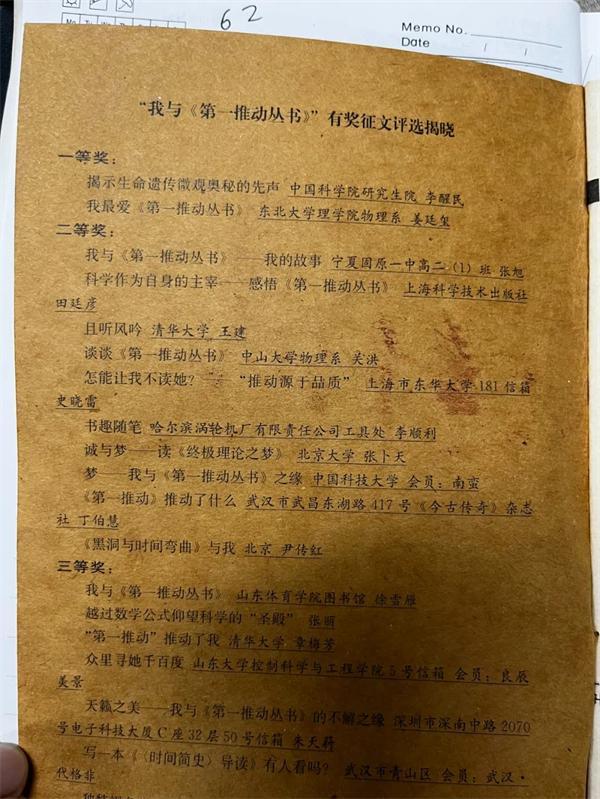 62
Memo No.
Date / /
“我与《第一推动丛书》”有奖征文评选揭晓
一等奖：
揭示生命遗传微观奥秘的先声 中国科学院研究生院 李醒民
我最爱《第一推动丛书》 东北大学理学院物理系 姜廷玺
二等奖：
我与《第一推动丛书》——我的故事 宁夏固原一中高二（1）班 张旭
科学作为自身的主宰——感悟《第一推动丛书》 上海科学技术出版社
田廷彦
且听风吟 清华大学 王建
谈谈《第一推动丛书》 中山大学物理系 吴洪
怎能让我不读她？——“推动源于品质” 上海市东华大学181信箱
史晓雷
书趣随笔 哈尔滨涡轮机厂有限责任公司工具处 李顺利
诚与梦——读《终极理论之梦》 北京大学 张卜天
梦——我与《第一推动丛书》之缘 中国科技大学 会员：南蛮
《第一推动》推动了什么 武汉市武昌东湖路417号《今古传奇》杂志
社 丁伯慧
《黑洞与时间弯曲》与我 北京 尹传红
三等奖：
我与《第一推动丛书》 山东体育学院图书馆 徐雪雁
越过数学公式仰望科学的“圣殿” 张丽
”第一推动”推动了我 清华大学 章梅芳
众里寻她千百度 山东大学控制科学与工程学院5号信箱 会员：良辰
美景
天籁之美——我与《第一推动丛书》的不解之缘 深圳市深南中路2070
号电子科技大厦C座32层50号信箱 朱天
写一本《〈时间简史〉导读》有人看吗？ 武汉市青山区 会员：武汉·
代格非